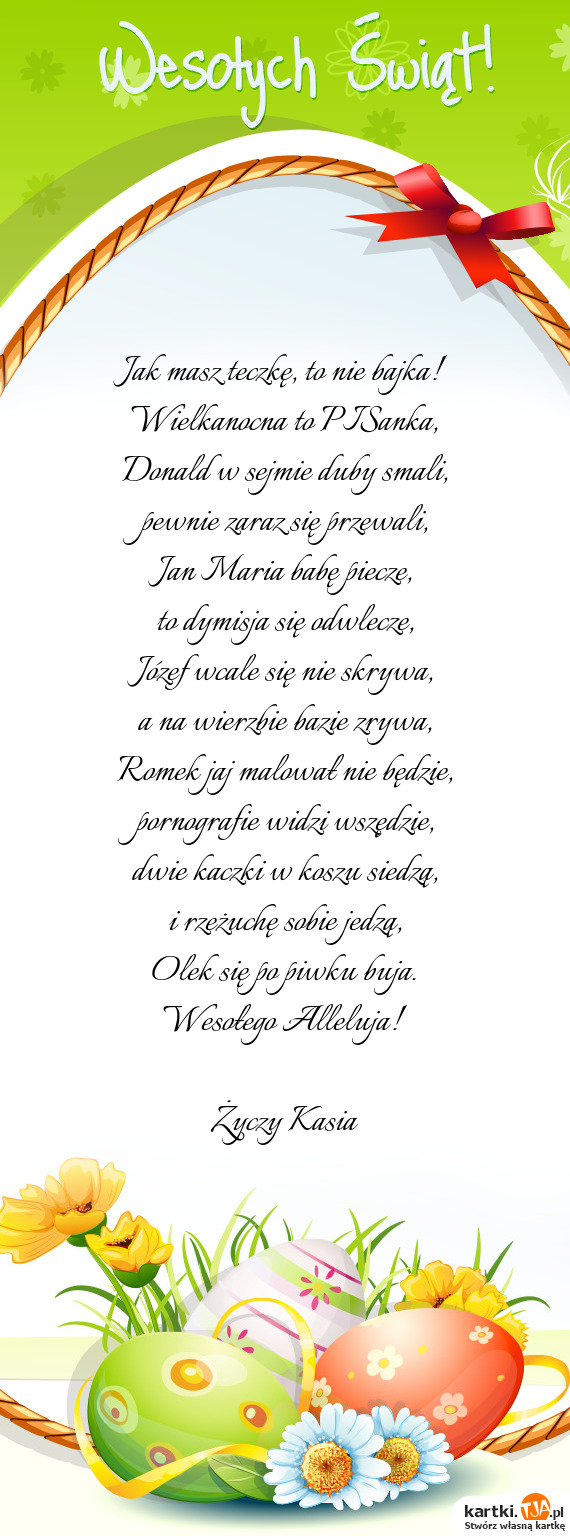 Wesołych Świąt!
Jak masz teczkę, to nie bajka!
Wielkanocna to PISanka,
Donald w sejmie duby smali,
pewnie zaraz się przewali,
Jan Maria babę piecze,
to dymisja się odwlecze,
Józef wcale się nie skrywa,
a na wierzbie bazie zrywa,
Romek jaj malował nie będzie,
pornografie widzi wszędzie,
dwie kaczki w koszu siedzą,
i rzeżuchę sobie jedzą,
Olek się po piwku buja.
Wesołego Alleluja!
Życzy Kasia
kartki.TJA.pl
Stwórz własną kartkę